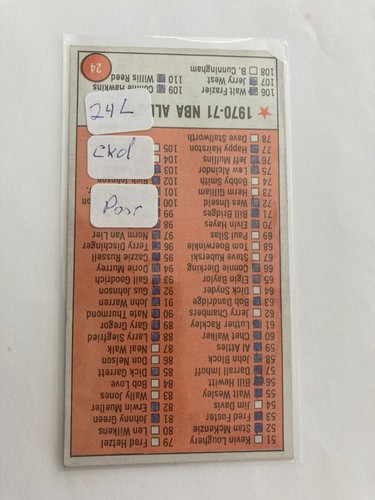 24L
CKd
Poor
51 Kevin Loughery
52 Stan McKenzie
53 Fred Foster
54 Jim Davis
55 Walt Wesley
56 Bill Hewitt
57 Darrall Imhoff
58 John Block
59 Al Attles
60 Chet Walker
61 Luther Rackley
62 Jerry Chambers
63 Bob Dandridge
64 Dick Snyder
65 Elgin Baylor
66 Connie Dierking
67 Steve Kuberski
68 Tom Boerwinkle
69 Paul Silas
70 Elvin Hayes
71 Bill Bridges
72 Wes Unseld
73 Herm Gilliam
74 Bobby Smith
75 Lew Alcindor
76 Jeff Mullins
77 Happy Hairston
78 Dave Stallworth
79 Fred Hetzel
80 Len Wilkens
81 Johnny Green
82 Erwin Mueller
83 Wally Jones
84 Bob Love
85 Dick Garrett
86 Don Nelson
87 Neal Walk
88 Larry Siegfried
89 Gary Gregor
90 Nate Thurmond
91 John Warren
92 Gus Johnson
93 Gail Goodrich
94 Dorie Murrey
95 Cazzie Russell
96 Terry Dischinger
97 Norm Van Lier
98
99
100
101
102 Rich Johnson
103
104
105
★ 1970-71 NBA ALL
106 Walt Frazier
107 Jerry West
108 B. Cunningham
109 Connie Hawkins
110 Willis Reed
24